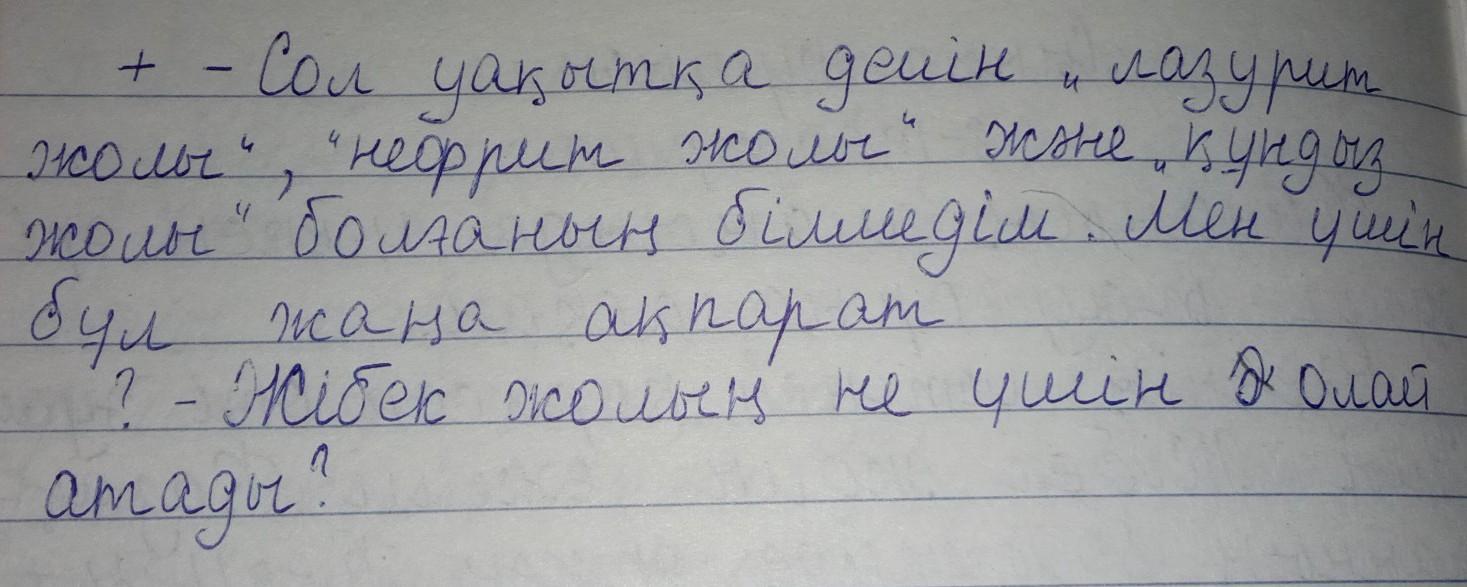 + - Сол уақытқа дейін „лазурит
жолы“, “нефрит жолы“ және „құндыз
жолы“ болғаның білмедім. Мен үшін
бұл жаңа ақпарат
? - Жібек жолың не үшін олай
атады?